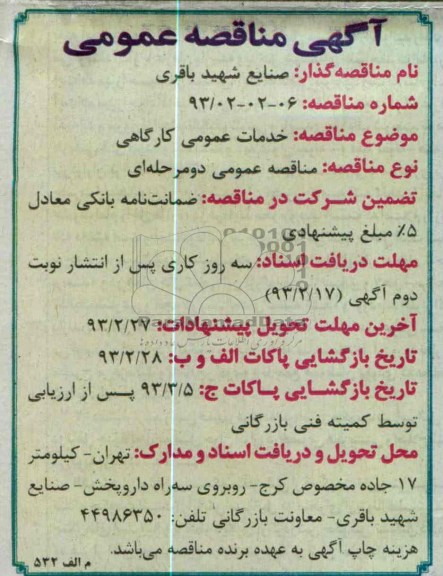 آگهی مناقصه عمومی
نام مناقصه‌گذار: صنایع شهید باقری
شماره مناقصه: ۰۶-۰۲-۰۲-۹۳
موضوع مناقصه: خدمات عمومی کارگاهی
نوع مناقصه: مناقصه عمومی دومرحله‌ای
تضمین شرکت در مناقصه: ضمانت‌نامه بانکی معادل
۵٪ مبلغ پیشنهادی
مهلت دریافت اسناد: سه روز کاری پس از انتشار نوبت
دوم آگهی (۹۳/۲/۱۷)
آخرین مهلت تحویل پیشنهادات: ۹۳/۲/۲۷
تاریخ بازگشایی پاکات الف و ب: ۹۳/۲/۲۸
تاریخ بازگشایی پاکات ج: ۹۳/۳/۵ پس از ارزیابی
توسط کمیته فنی بازرگانی
محل تحویل و دریافت اسناد و مدارک: تهران- کیلومتر
۱۷ جاده مخصوص کرج- روبروی سه‌راه داروپخش- صنایع
شهید باقری- معاونت بازرگانی تلفن: ۴۴۹۸۶۳۵۰
هزینه چاپ آگهی به عهده برنده مناقصه می‌باشد.
م الف ۵۳۲